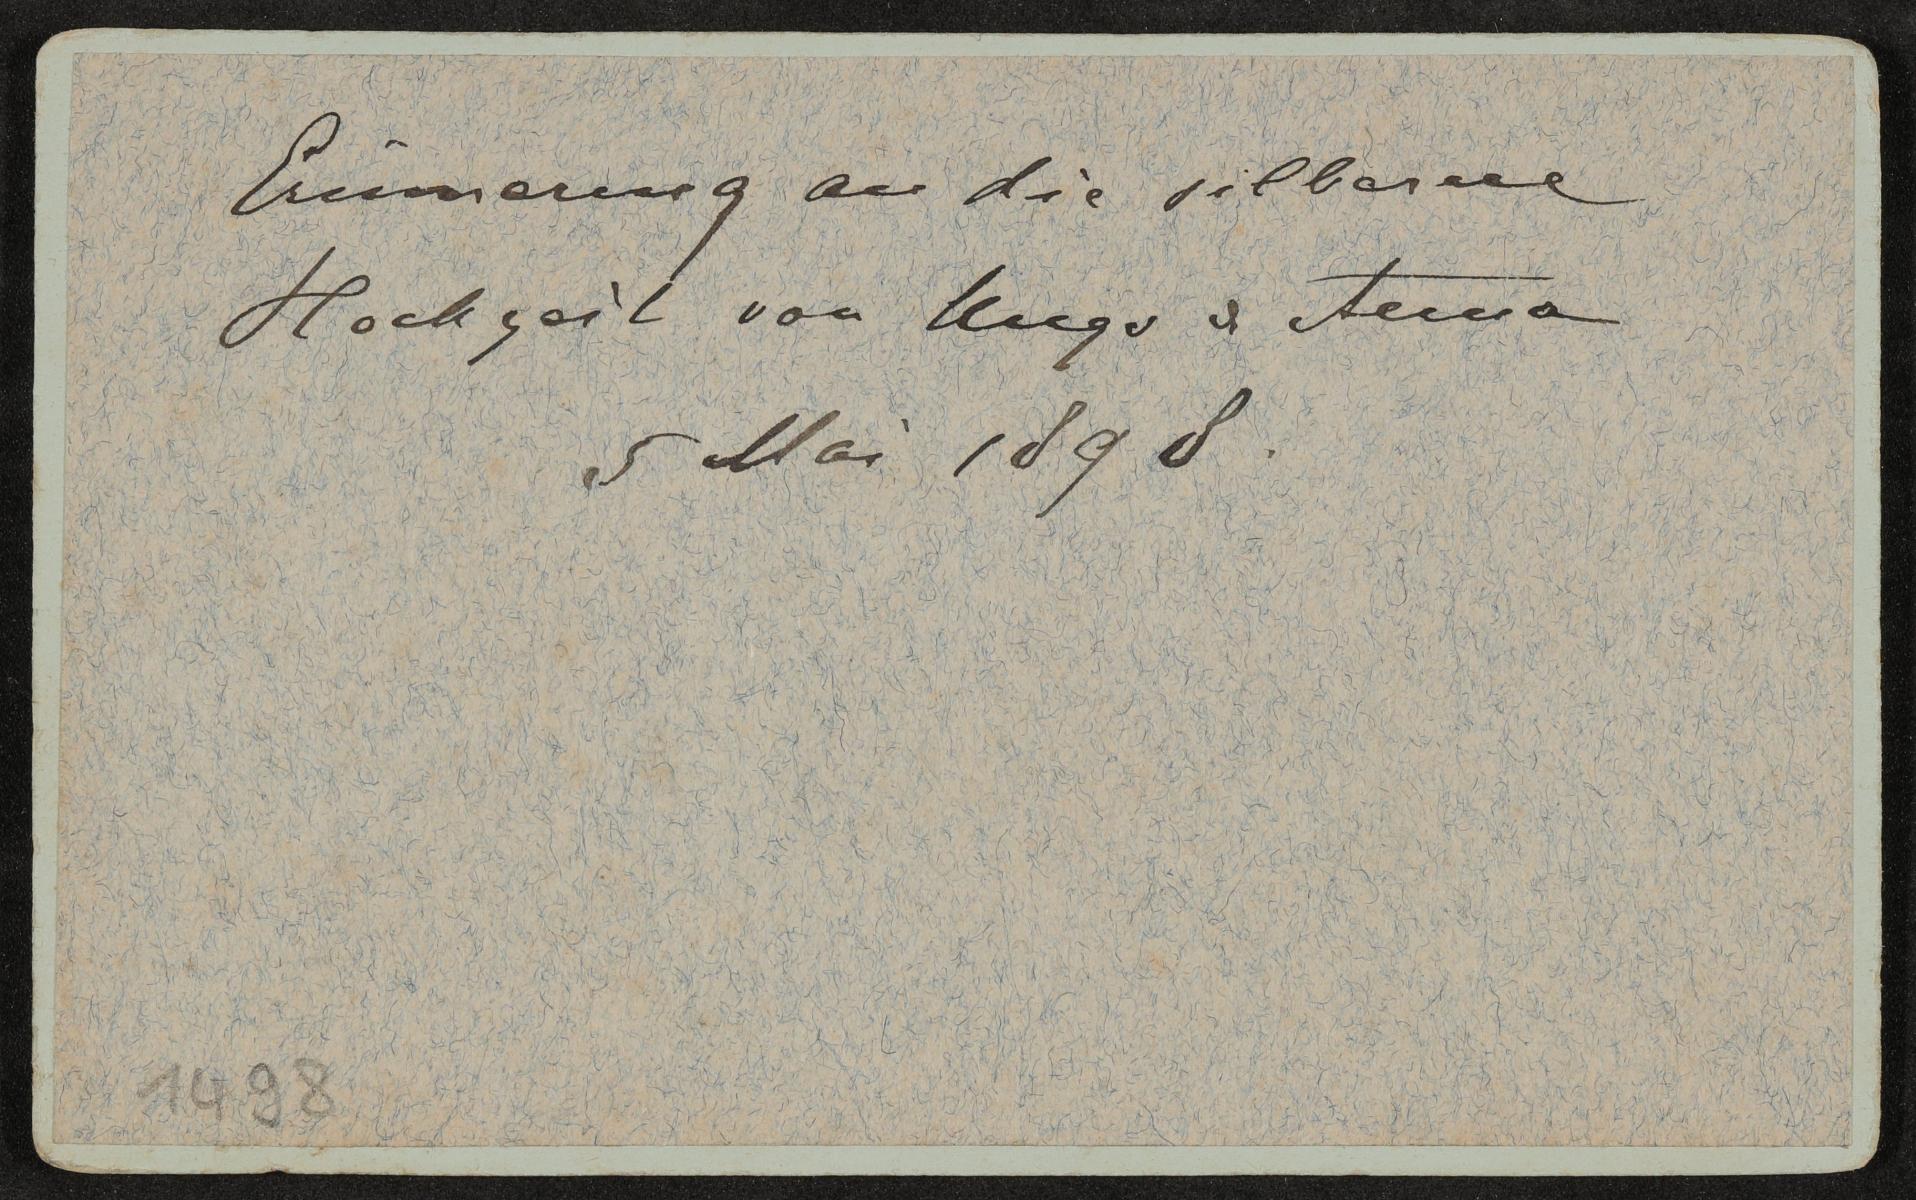 Erinnerung an die silberne
Hochzeit von Hugo & Anna
5 Mai 1898.
1498